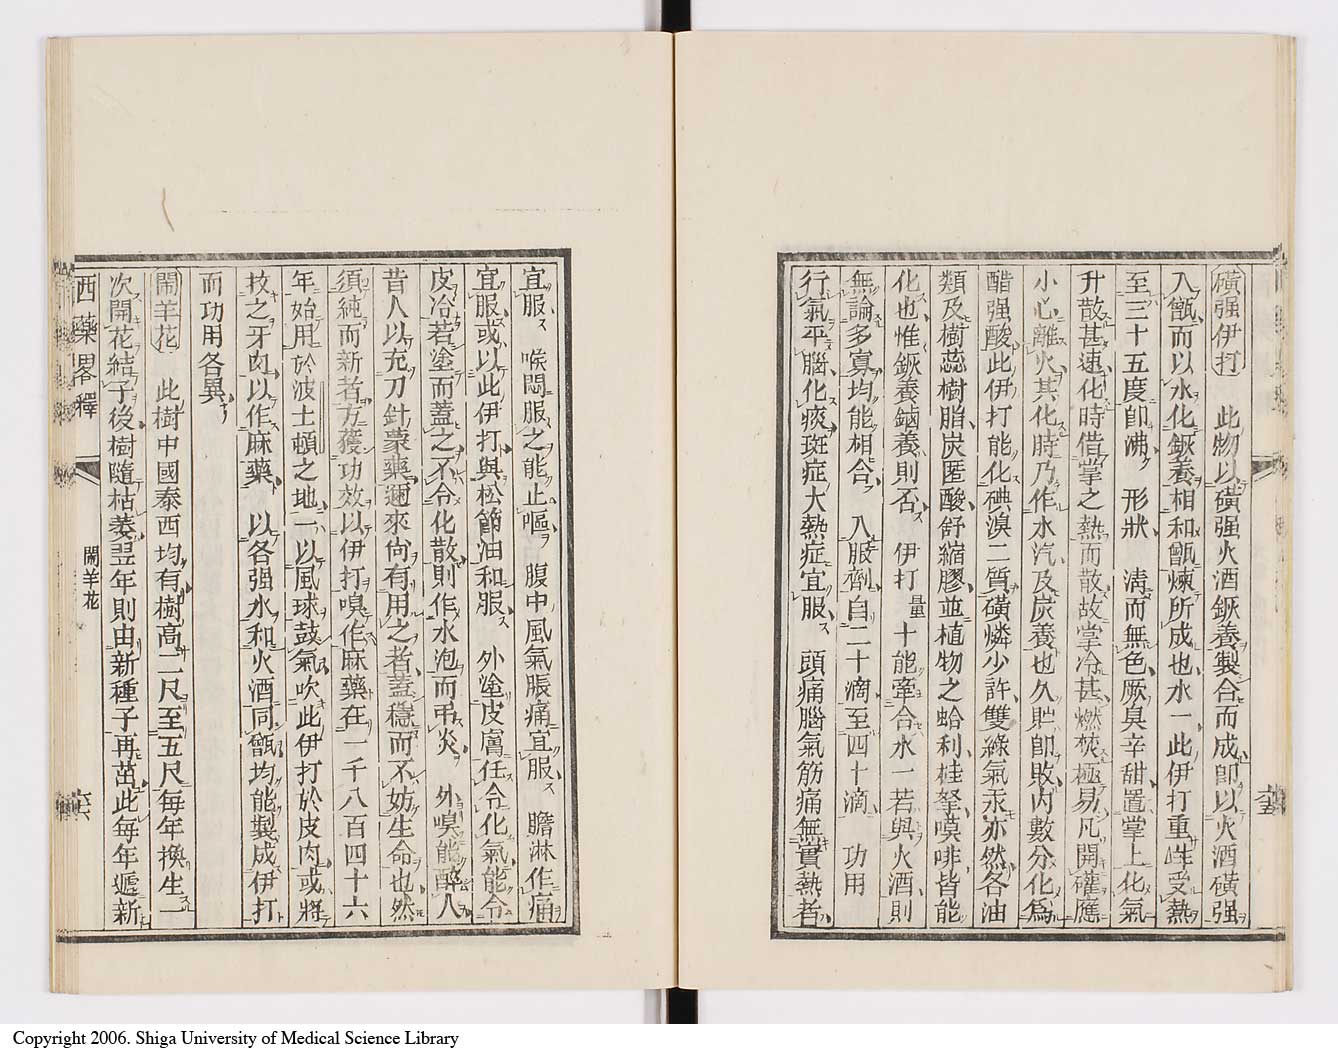 磺强伊打　此物以磺强火酒鋠養製合而成卽以火酒磺强
入甑而以水化鋠養相和甑煉所成也水一此伊打重 受熱
至三十五度卽沸　形狀　清而無色厥臭辛甜置掌上化氣
升散甚速化時借掌之熱而散故掌冷甚燃焚極易凡開礶應
小心離火其化時乃作水汽及炭養也久貯卽敗內數分化爲
醋强酸此伊打能化碘溴二質磺燐少許雙綠氣汞亦然各油
類及樹蕊樹脂炭匿酸舒縮膠並植物之蛤利桂孥嗼啡皆能
化也惟鋠養鏀養則否　伊打量十能牽合水一若與火酒則
無論多寡均能相合　入服劑自二十滴至四十滴　功用
行氣平腦化痰斑症大熱症宜服　頭痛腦氣筋痛無實熱者
宜服　喉悶服之能止嘔　腹中風氣脹痛宜服　膽淋作痛
宜服或以此伊打與松節油和服　外塗皮膚任令化氣能令
皮冶若塗而蓋之不令化散則作水泡而弔炎　外嗅能醉人
昔人以充刀針蒙藥邇來尙有用之者蓋穩而不妨生命也然
須純而新者方獲功效以伊打嗅作麻藥在一千八百四十六
年始用於波士頓之地一以風球鼓氣吹此伊打於皮肉或將
拔之牙肉以作麻藥　以各强水和火酒同甑均能製成伊打
而功用各異
鬧羊花　此樹中國泰西均有樹高二尺至五尺每年換生一
次開花結子後樹隨枯萎翌年則由新種子再茁此每年遞新
西藥畧釋　鬧羊花　六